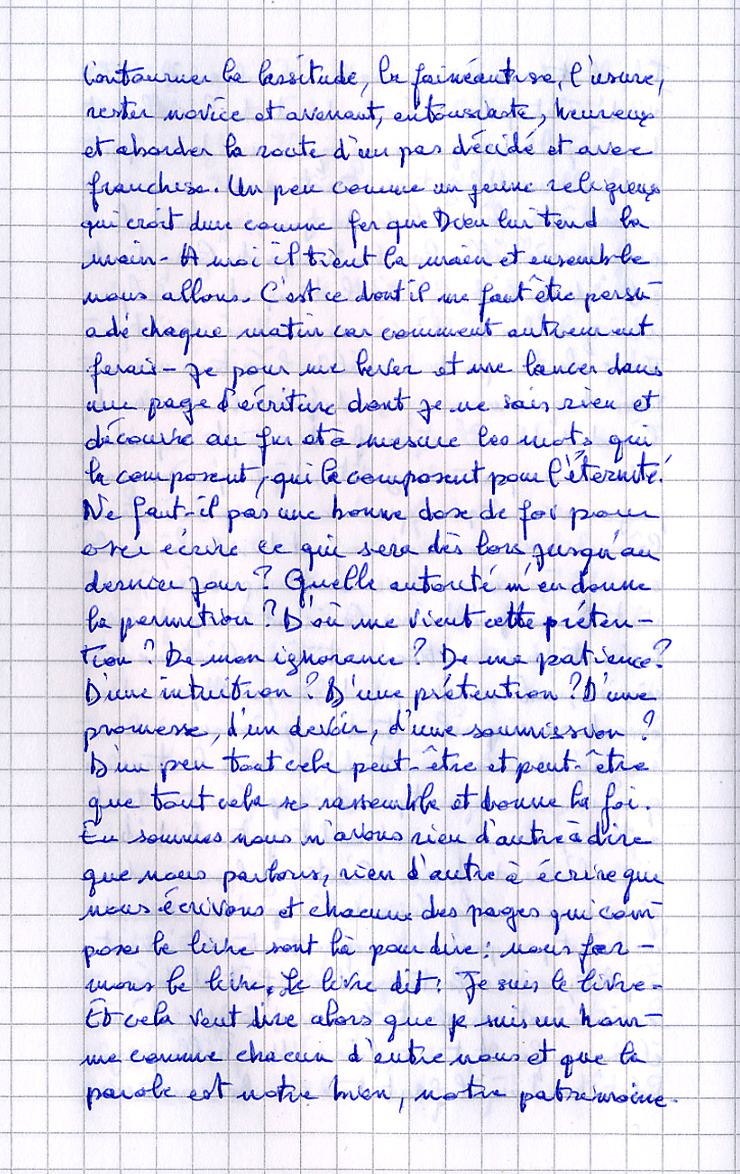 Contourner la lassitude, la fainéantise, l'usure,
rester novice et avenant, entousiaste, heureux
et aborder la route d'un pas décidé et avec
franchise. Un peu comme un jeune religieux
qui croit dur comme fer que Dieu lui tend la
main - A moi il tient la main et ensemble
nous allons. C'est ce dont il me faut être persu-
adé chaque matin car comment autrement
ferais-je pour me lever et me lancer dans
une page d'écriture dont je ne sais rien et
découvre au fur et à mesure les mots qui
la composent, qui la composent pour l'éternité.
Ne faut-il pas une bonne dose de foi pour
oser écrire ce qui sera dès lors jusqu'au
dernier jour ? Quelle autorité m'en donne
la permition ? D'où me vient cette préten-
tion ? De mon ignorance ? De ma patience ?
D'une intuition ? D'une prétention ? D'une
promesse, d'un devoir, d'une soumission ?
D'un peu tout cela peut-être et peut-être
que tout cela se rassemble et donne la foi.
En sommes nous n'avons rien d'autre à dire
que nous parlons, rien d'autre à écrire que
nous écrivons et chacune des pages qui com-
pose le livre sont là pour dire : nous for-
mons le livre. Le livre dit : Je suis le livre -
Et cela veut dire alors que je suis un hom-
me comme chacun d'entre nous et que la
parole est notre bien, notre patrimoine.